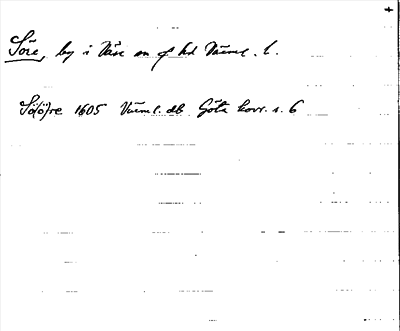 Söre, by i Väse sn o f hd Värml. l.
Sö(ö)re 1605 Värml. db Göta hovr. s. 6